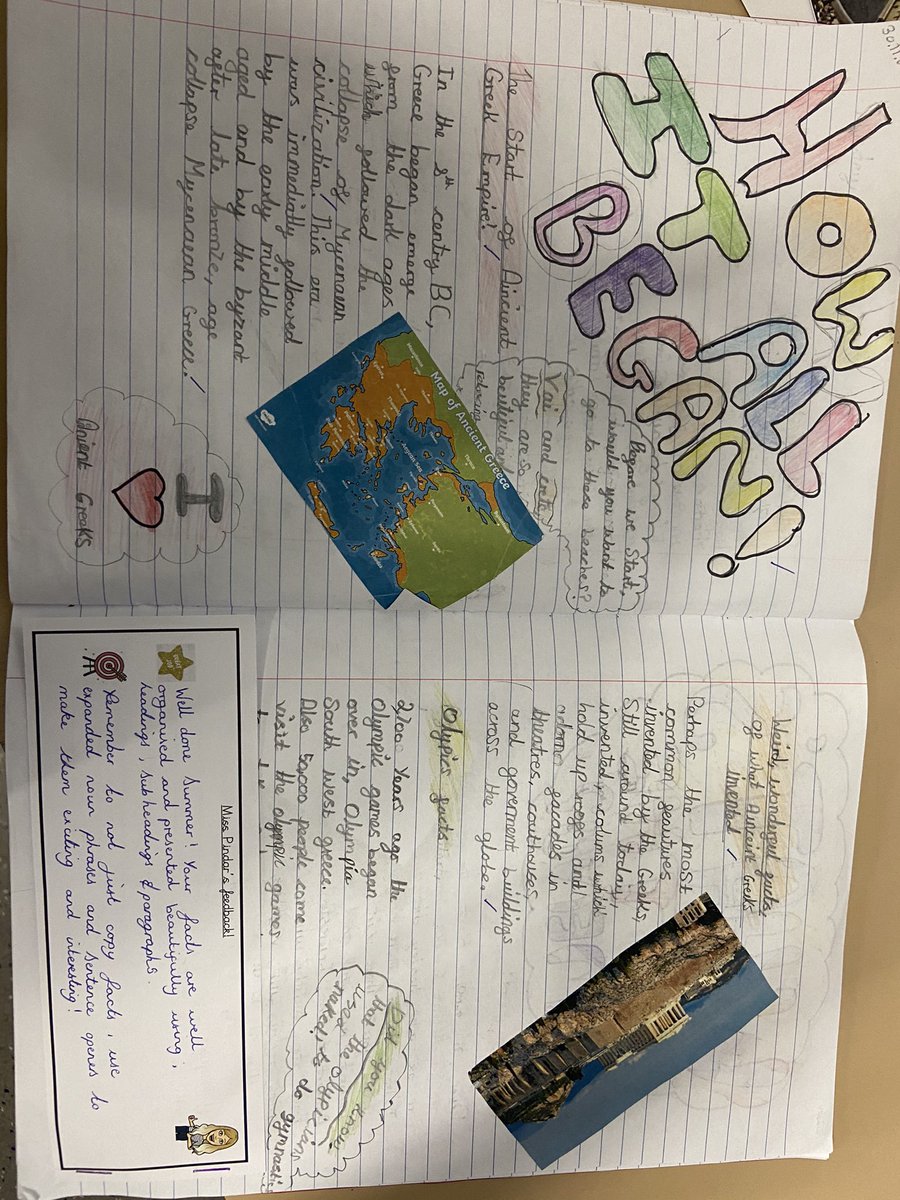 30.11.
HOW
IT ALL
BEGAN!
Before we Start,
would you want to
go to these beaches?
Vai and
they are so
beautiful and
relaxing
The Start of Ancient
Greek Empire!
In the 8th centry BC,
Greece began emerge
from the dark ages
which followed the
collapse of Mycenaean
civilization! This era
was immediatly followed
by the early middle
aged and by the byzant
after late bronze, age
collapse Mycenaean Greece!
Map of Ancient Greece
I
Anient Greeks
Weird, wonderful facts,
of what Ancient Greeks
Invented
Perhaps the most
common features
invented by the Greeks,
Still around today,
invented, colums which
hold up roofs and
adorn facades in
theatres, couthouses,
and goverment buildings
across the globe.
Olypics facts
2700 Years ago the
Olympic games began
over in, Olympia
South west greece.
Also 50000 people come
visit the olympic games
Did you know!
that the Olypician
used
naked! to do gymnastic
Miss Pindar's feedback!
Well done Summer! Your facts are well
organised and presented beautifully using;
headings, subheadings & paragraphs.
Remember to not just copy facts, use
expanded noun phrases and sentence openers to
make them exciting and interesting!